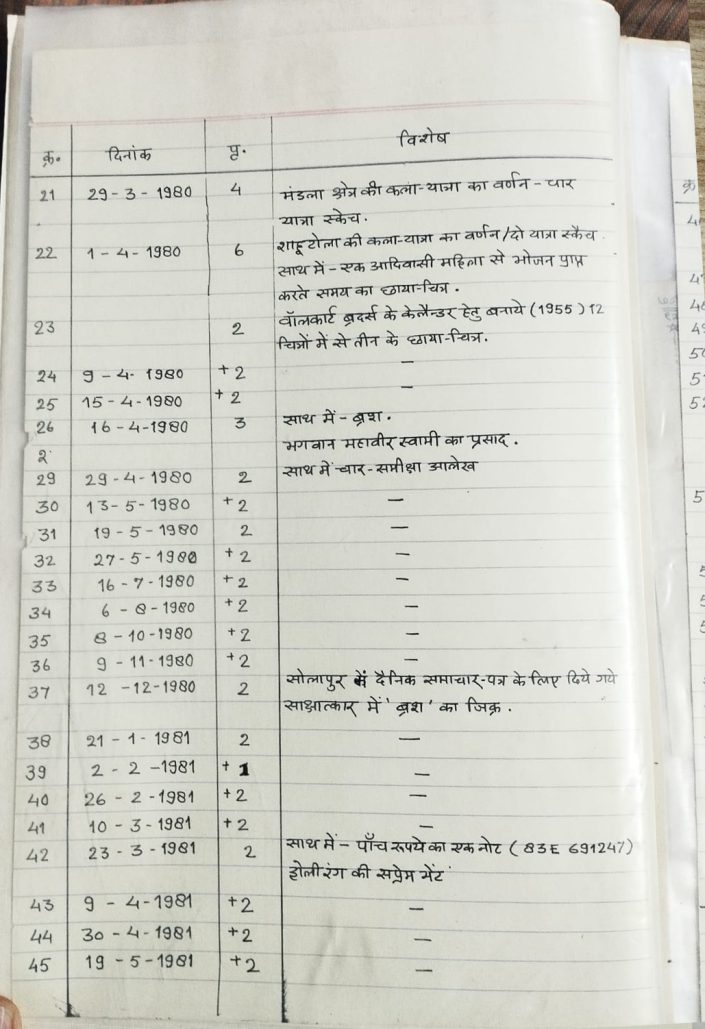 क्र. दिनांक पृ. विशेष
21 29-3-1980 4 मंडला क्षेत्र की कला-यात्रा का वर्णन - चार
यात्रा स्केच.
22 1-4-1980 6 शाहूटोला की कला-यात्रा का वर्णन/दो यात्रा स्केच.
साथ में - एक आदिवासी महिला से भोजन प्राप्त
करते समय का छाया-चित्र.
23 2 वॉलकार्ट ब्रदर्स के केलैन्डर हेतु बनाये (1955) 12
चित्रों में से तीन के छाया-चित्र.
24 9-4-1980 +2 —
25 15-4-1980 +2 —
26 16-4-1980 3 साथ में - ब्रश.
भगवान महावीर स्वामी का प्रसाद.
2
29 29-4-1980 2 साथ में चार-समीक्षा आलेख
30 13-5-1980 +2 —
31 19-5-1980 2 —
32 27-5-1980 +2 —
33 16-7-1980 +2 —
34 6-8-1980 +2 —
35 8-10-1980 +2 —
36 9-11-1980 +2 —
37 12-12-1980 2 सोलापुर में दैनिक समाचार-पत्र के लिए दिये गये
साक्षात्कार में 'ब्रश' का जिक्र.
38 21-1-1981 2 —
39 2-2-1981 +1 —
40 26-2-1981 +2 —
41 10-3-1981 +2 —
42 23-3-1981 2 साथ में - पाँच रूपये का एक नोट (83E 691247)
होली रंग की सप्रेम भेंट
43 9-4-1981 +2 —
44 30-4-1981 +2 —
45 19-5-1981 +2 —